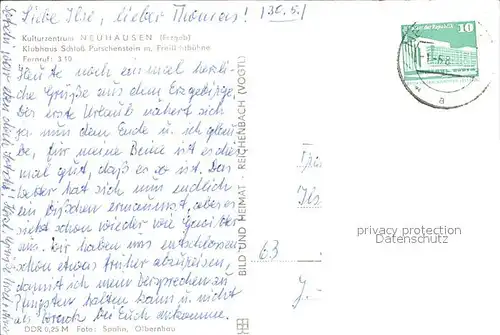 Liebe Ilse, lieber Thomas! (30.5.)
Kulturzentrum NEUHAUSEN (Erzgeb)
Klubhaus Schloß Purschenstein m. Freilichtbühne
Fernruf: 310
Heute noch einmal herzli-
che Grüße aus dem Erzgebirge.
Der erste Urlaub nähert sich
ja nun dem Ende u. ich glau-
be, für meine Beine ist es dies-
mal gut, daß es so ist. Das
Wetter hat sich nun endlich
ein bißchen ermannt, aber es
sieht schon wieder wie Gewitter
aus. Wir haben uns entschlossen
schon etwas früher abzureisen,
damit ich mein Versprechen zu
Pfingsten halten kann u. nicht
als Wrack bei Euch ankomme.
DDR 0,25 M Foto: Sonlin, Olbernhau
BILD UND HEIMAT · REICHENBACH (VOGTL)
10
a
63
privacy protection
www.ansichtskartenversand.com